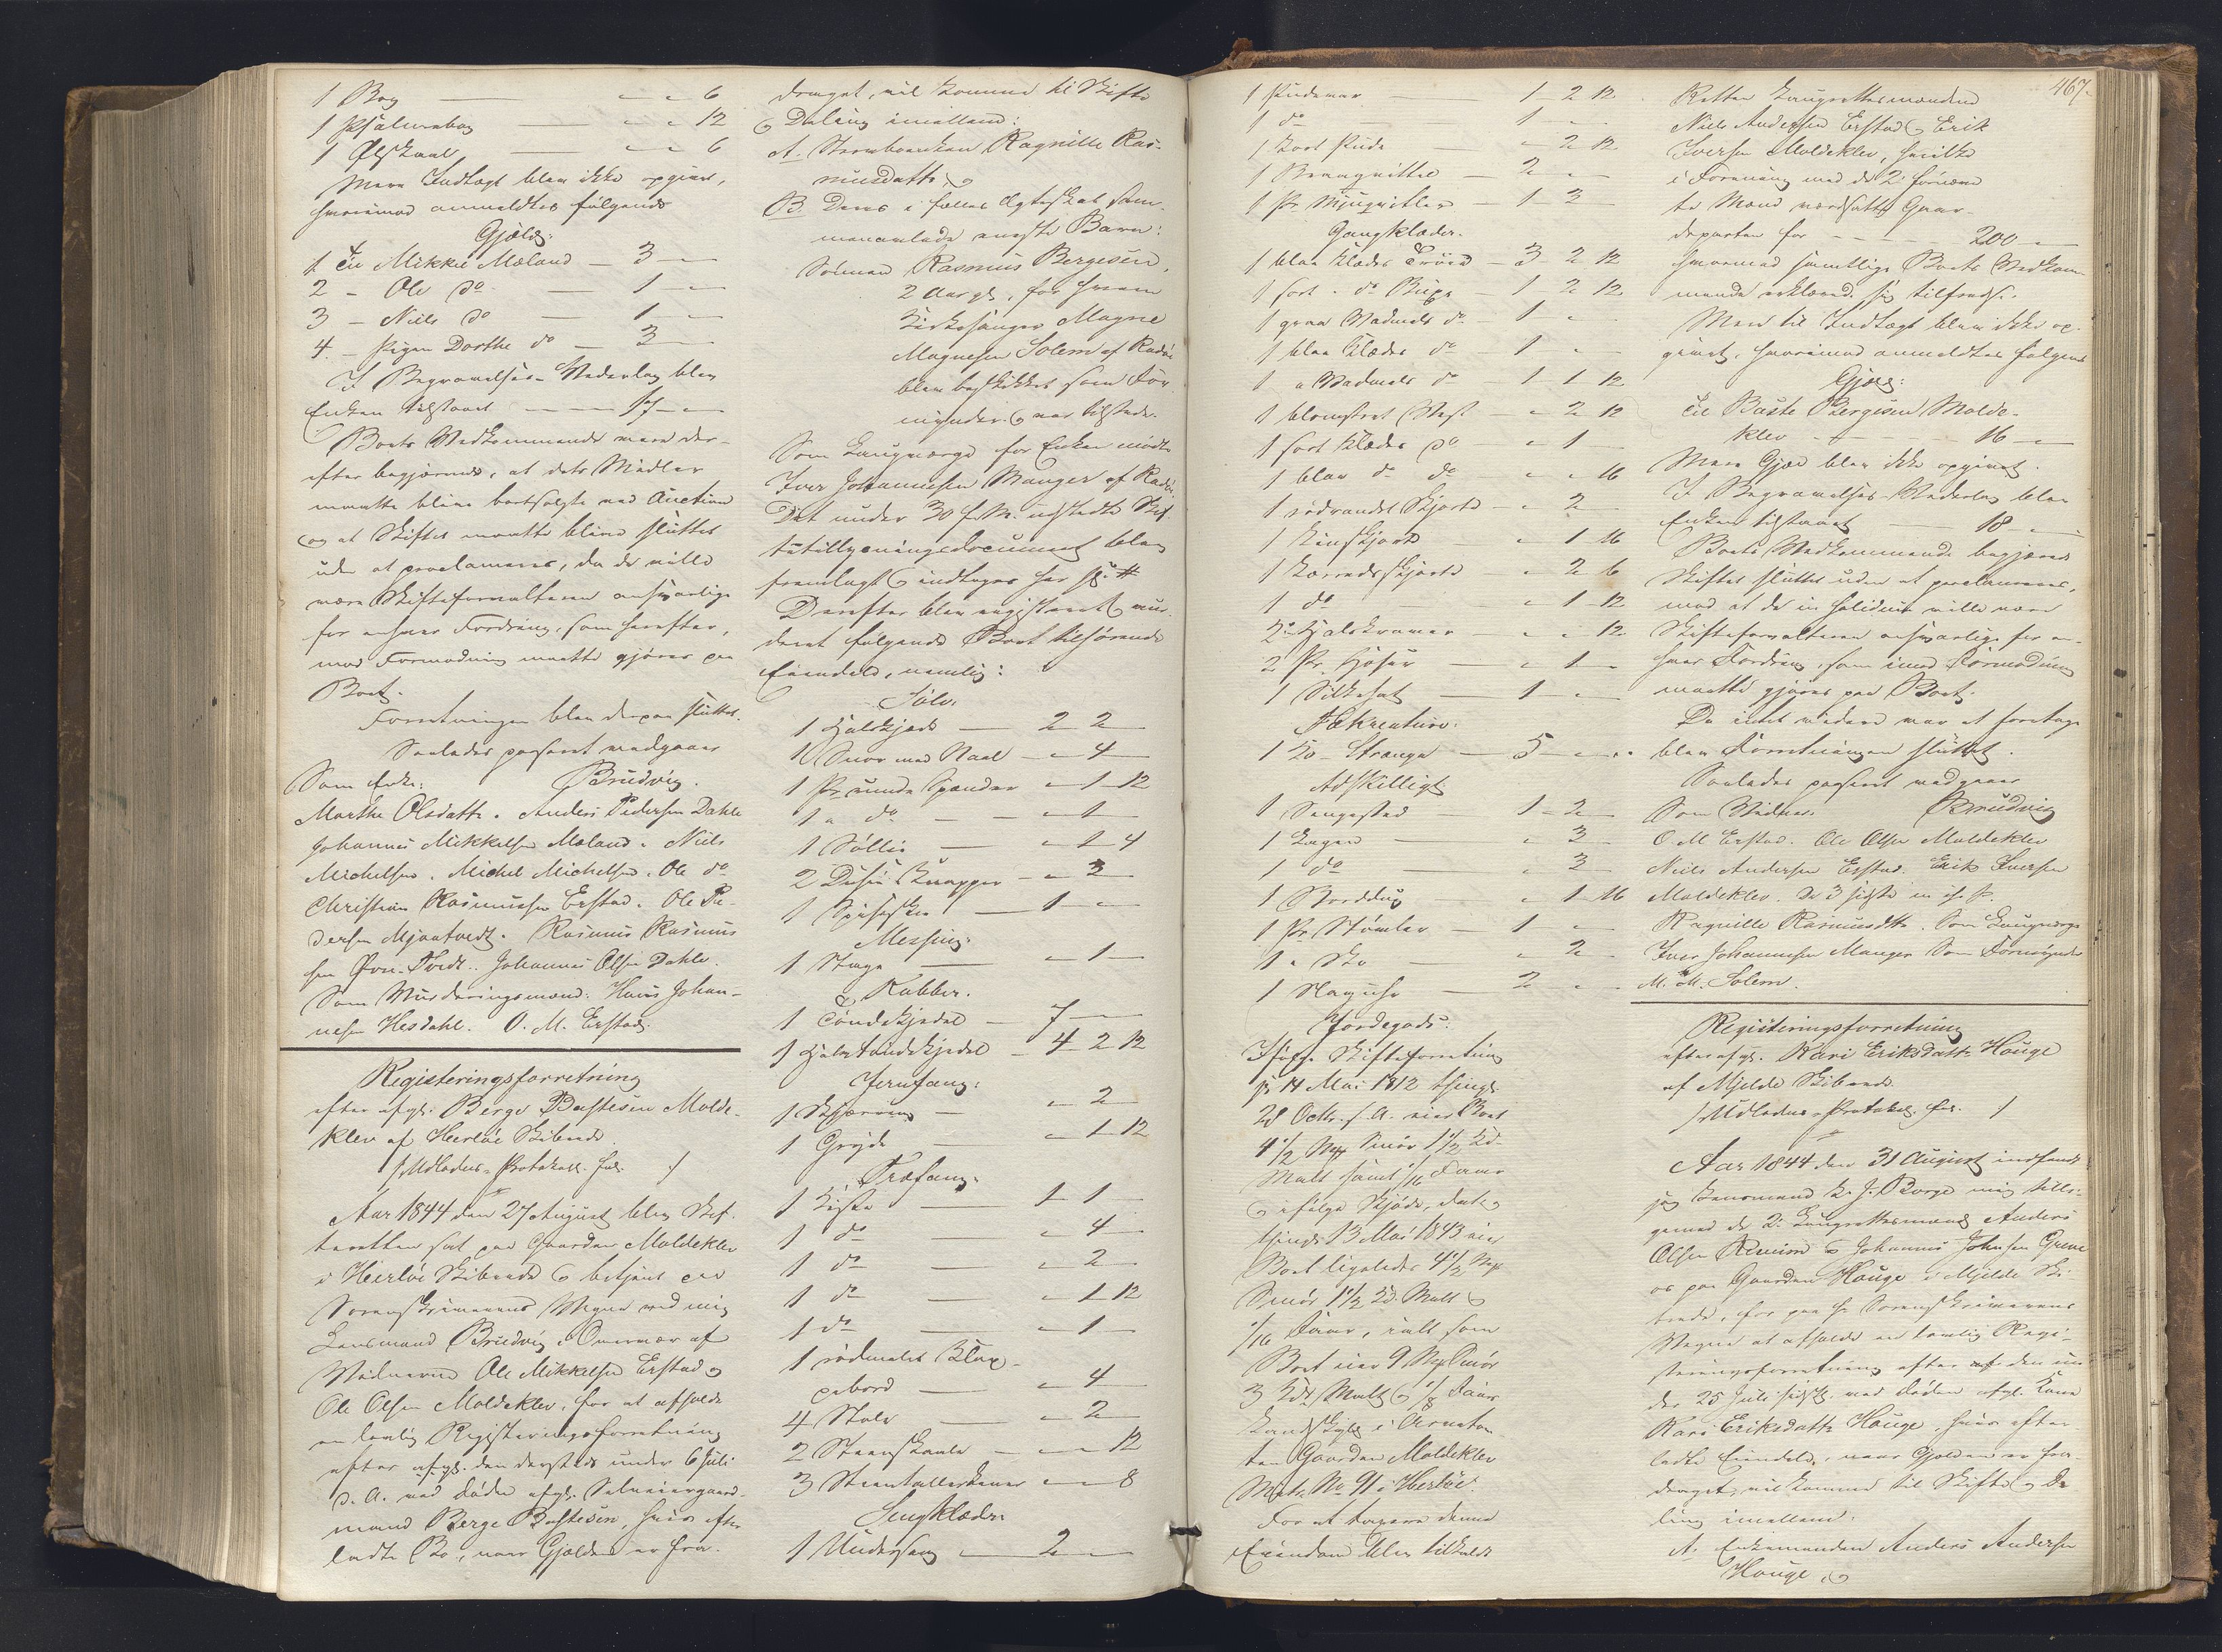 1 Bog — „ „ 6
1 Psalmebog — „ „ 12
1 Ølskaal — „ „ 6
Mere Indtægt blev ikke opgivet,
hvorimod anmeldtes følgende
Gjæld:
1 Til Mikkel Mæland — 3 —
2 - Ole do — 1 —
3 - Niels do — 1 —
4 - Pigen Dorthe do — 3 —
I Begravelses-Vederlag blev
Enken tilstaaet — 17 —
Boets Vedkommende vare der-
efter begjærende, at dets Midler
maatte blive bortsolgte ved Auction
og at Skiftet maatte blive sluttet
uden at proclameres, da de ville
være Skifteforvalteren ansvarlige
for enhver Fordring, som herefter,
mod Formodning maatte gjøres paa
Boet.
Forretningen blev derpaa sluttet.
Saaledes passeret vedgaaer
Som Enke: Brudvig.
Marthe Olsdatter. Anders Pedersen Dahle
Johannes Mikkelsen Mæland. Niels
Michelsen. Michel Michelsen. Ole do
Christian Rasmussen Erstad. Ole Pe-
dersen Mjaatvedt. Rasmus Rasmus-
sen Øvre-Tvedt. Johannes Olsen Dahle.
Som Vurderingsmænd: Hans Johan-
nesen Hesdahl. O. M. Erstad.
Registeringsforretning
efter afg. Berge Bastesen Molde-
klev af Herløe Skibrede.
/: Udlodn. Protokoll. fol. :/
Aar 1844 den 27 August blev Skif-
teretten sat paa Gaarden Moldeklev
i Herløe Skibrede og betjent paa
Sorenskriverens Vegne ved mig
Lensmand Brudvig i Overvær af
Vidnerne Ole Mikkelsen Erstad og
Ole Olsen Moldeklev, for at afholde
en lovlig Registeringsforretning
efter afg. den dersteds under 6 Juli
d. A. ved Døden afg. Selveiergaard-
mand Berge Bastesen, hvis efter-
ladte Bo, naar Gjælden er fra-
draget, vil komme til Skifte
og Deling imellem:
A. Stervboenken Ragnille Ras-
musdatter, og
B. Deres i fælles Ægteskab sam-
menavlede eneste Barn:
Sønnen Rasmus Bergesen,
2 Aar gl., for hvem
Kirkesanger Magne
Magnesen Solem af Radøe
blev beskikket som For-
mynder og var tilstede.
Som Laugværge for Enken mødte
Iver Johannesen Manger af Radøe
Det under 30 f. M. udstedte Skif-
tetillysningsdocument blev
fremlagt og indtages her sp. #
Derefter blev registeret og vur-
deret følgende Boet tilhørende
Eiendele, nemlig:
Sølv.
1 Halskjæde — 2 2 —
1 Snor med Naal — „ 4 —
1 Pr. runde Spænder — „ 1 12
1 „ do — „ 1 —
1 Søllie — „ 1 4
2 Dusin Knapper — „ 3 —
1 Spiseskee — 1 „ —
Messing.
1 Stage — „ 1 —
Kobber.
1 Tøndekjedel — 7 —
1 Halvtøndekjedel — 4 2 12
Jernfang:
1 Skjærring — „ 2 —
1 Gryde — „ 1 12
Træfang.
1 Kiste — 1 1 —
1 do — „ 4 —
1 do — „ 2 —
1 do — „ 1 12
1 do — „ 1 —
1 rødmalet Klap-
pebord — „ 4 —
4 Stole — „ 2 —
2 Steenskaale — „ „ 12
3 Steentallerkener — „ „ 8
Sengklæder.
1 Underseng — 2 —
467.
1 Pudevar — 1 2 12
1 do — 1 „ —
1 sort Pude — „ 2 12
1 — 2 „ —
1 Pr. — 1 3 —
Gangklæder.
1 blaa Klædes Trøie — 3 2 12
1 sort do Buxe — 1 2 12
1 graa Vadmels do — 1 „ —
1 blaa Klædes do — 1 „ —
1 „ Vadmels do — 1 1 12
1 blomstret Vest — „ 2 12
1 sort Klædes do — „ 1 —
1 blaa do do — „ „ 16
1 rødrandet Skjorte — „ 2 —
1 Linskjorte — „ 1 16
1 Lærredsskjorte — „ 2 6
1 do — „ 1 12
2 Halskraver — „ „ 12
2 Pr. Hoser — „ 1 —
1 Silkehat — 1 „ —
Fækreature.
1 Ko Stranga — 5 „ —
Adskilligt.
1 Sengested — 1 2 —
1 Lagen — „ 3 —
1 do — „ 3 —
1 Borddug — „ 1 16
1 Pr. Støvler — 1 „ —
1 „ Sko — „ 2 —
1 — 2 „ —
Jordegods:
Ifølge Skifteforretning
pr 14 Mai 1812 thingl.
28 Octbr. s. A. eier Boet
4 1/2 Mrk Smør 1 1/2 Kd.
Malt samt 1/16 Faar
og ifølge Skjøde, dat. og
thingl. 13 Mai 1843 eier
Boet ligeledes 4 1/2 Mrk
Smør 1 1/2 Kd. Malt og
1/16 Faar, ialt som
Boet eier 9 Mrk Smør
3 Kd. Malt og 1/8 Faar
Landskyld i
Gaarden Moldeklev
Matr. No 91 i Herløe.
For at taxere denne
Eiendom blev tilkaldt
Retten Laugrettesmændene
Niels Andersen Erstad og Erik
Iversen Moldeklev, hvilke
i Forening med de 2de førnævn-
te Mænd værdsatte Gaar-
departen for — 200 —
hvormed samtlige Boets Vedkom-
mende erklærede sig tilfreds.
Mere til Indtægt blev ikke op-
givet, hvorimod anmeldtes følgende
Gjæld:
Til Baste Bergesen Molde-
klev — 16 —
Mere Gjæld blev ikke opgivet.
I Begravelses-Vederlag blev
Enken tilstaaet — 18 —
Boets Vedkommende begjærede
Skiftet sluttet uden at proclameres,
mod at de in solidum ville være
Skifteforvalteren ansvarlige for en-
hver Fordring, som imod Formodning
maatte gjøres paa Boet.
Da intet videre var at foretage
blev Forretningen sluttet.
Saaledes passeret vedgaaer
Som Vidner. Brudvig
O M Erstad. Ole Olsen Moldeklev
Niels Andersen Erstad. Erik Iversen
Moldeklev. De 3 sidste m. f. P.
Ragnille Rasmusdtr. Som Laugværge
Iver Johannesen Manger Som Formynder
M. M. Solem.
Registeringsforretning
efter afg. Kari Eriksdatter Houge
af Mjelde Skibrede.
/: Udlodn. Protokol. fol. :/
Aar 1844 den 31 August indfandt
jeg Lensmand K. J. Borge mig tilli-
gemed de 2de Laugrettesmænd Anders
Olsen og Johannes Johnsen
os paa Gaarden Houge i Mjelde Ski-
brede, for paa Hr Sorenskriverens
Vegne at afholde en lovlig Regi-
steringsforretning efter den un-
der 25 Juli sidstl. ved Døden afg. Kone
Kari Eriksdatter Houge, hvis efter-
ladte Eiendele, naar Gjælden er fra-
draget, vil komme til Skifte og De-
ling imellem:
A. Enkemanden Anders Andersen
Houge, og